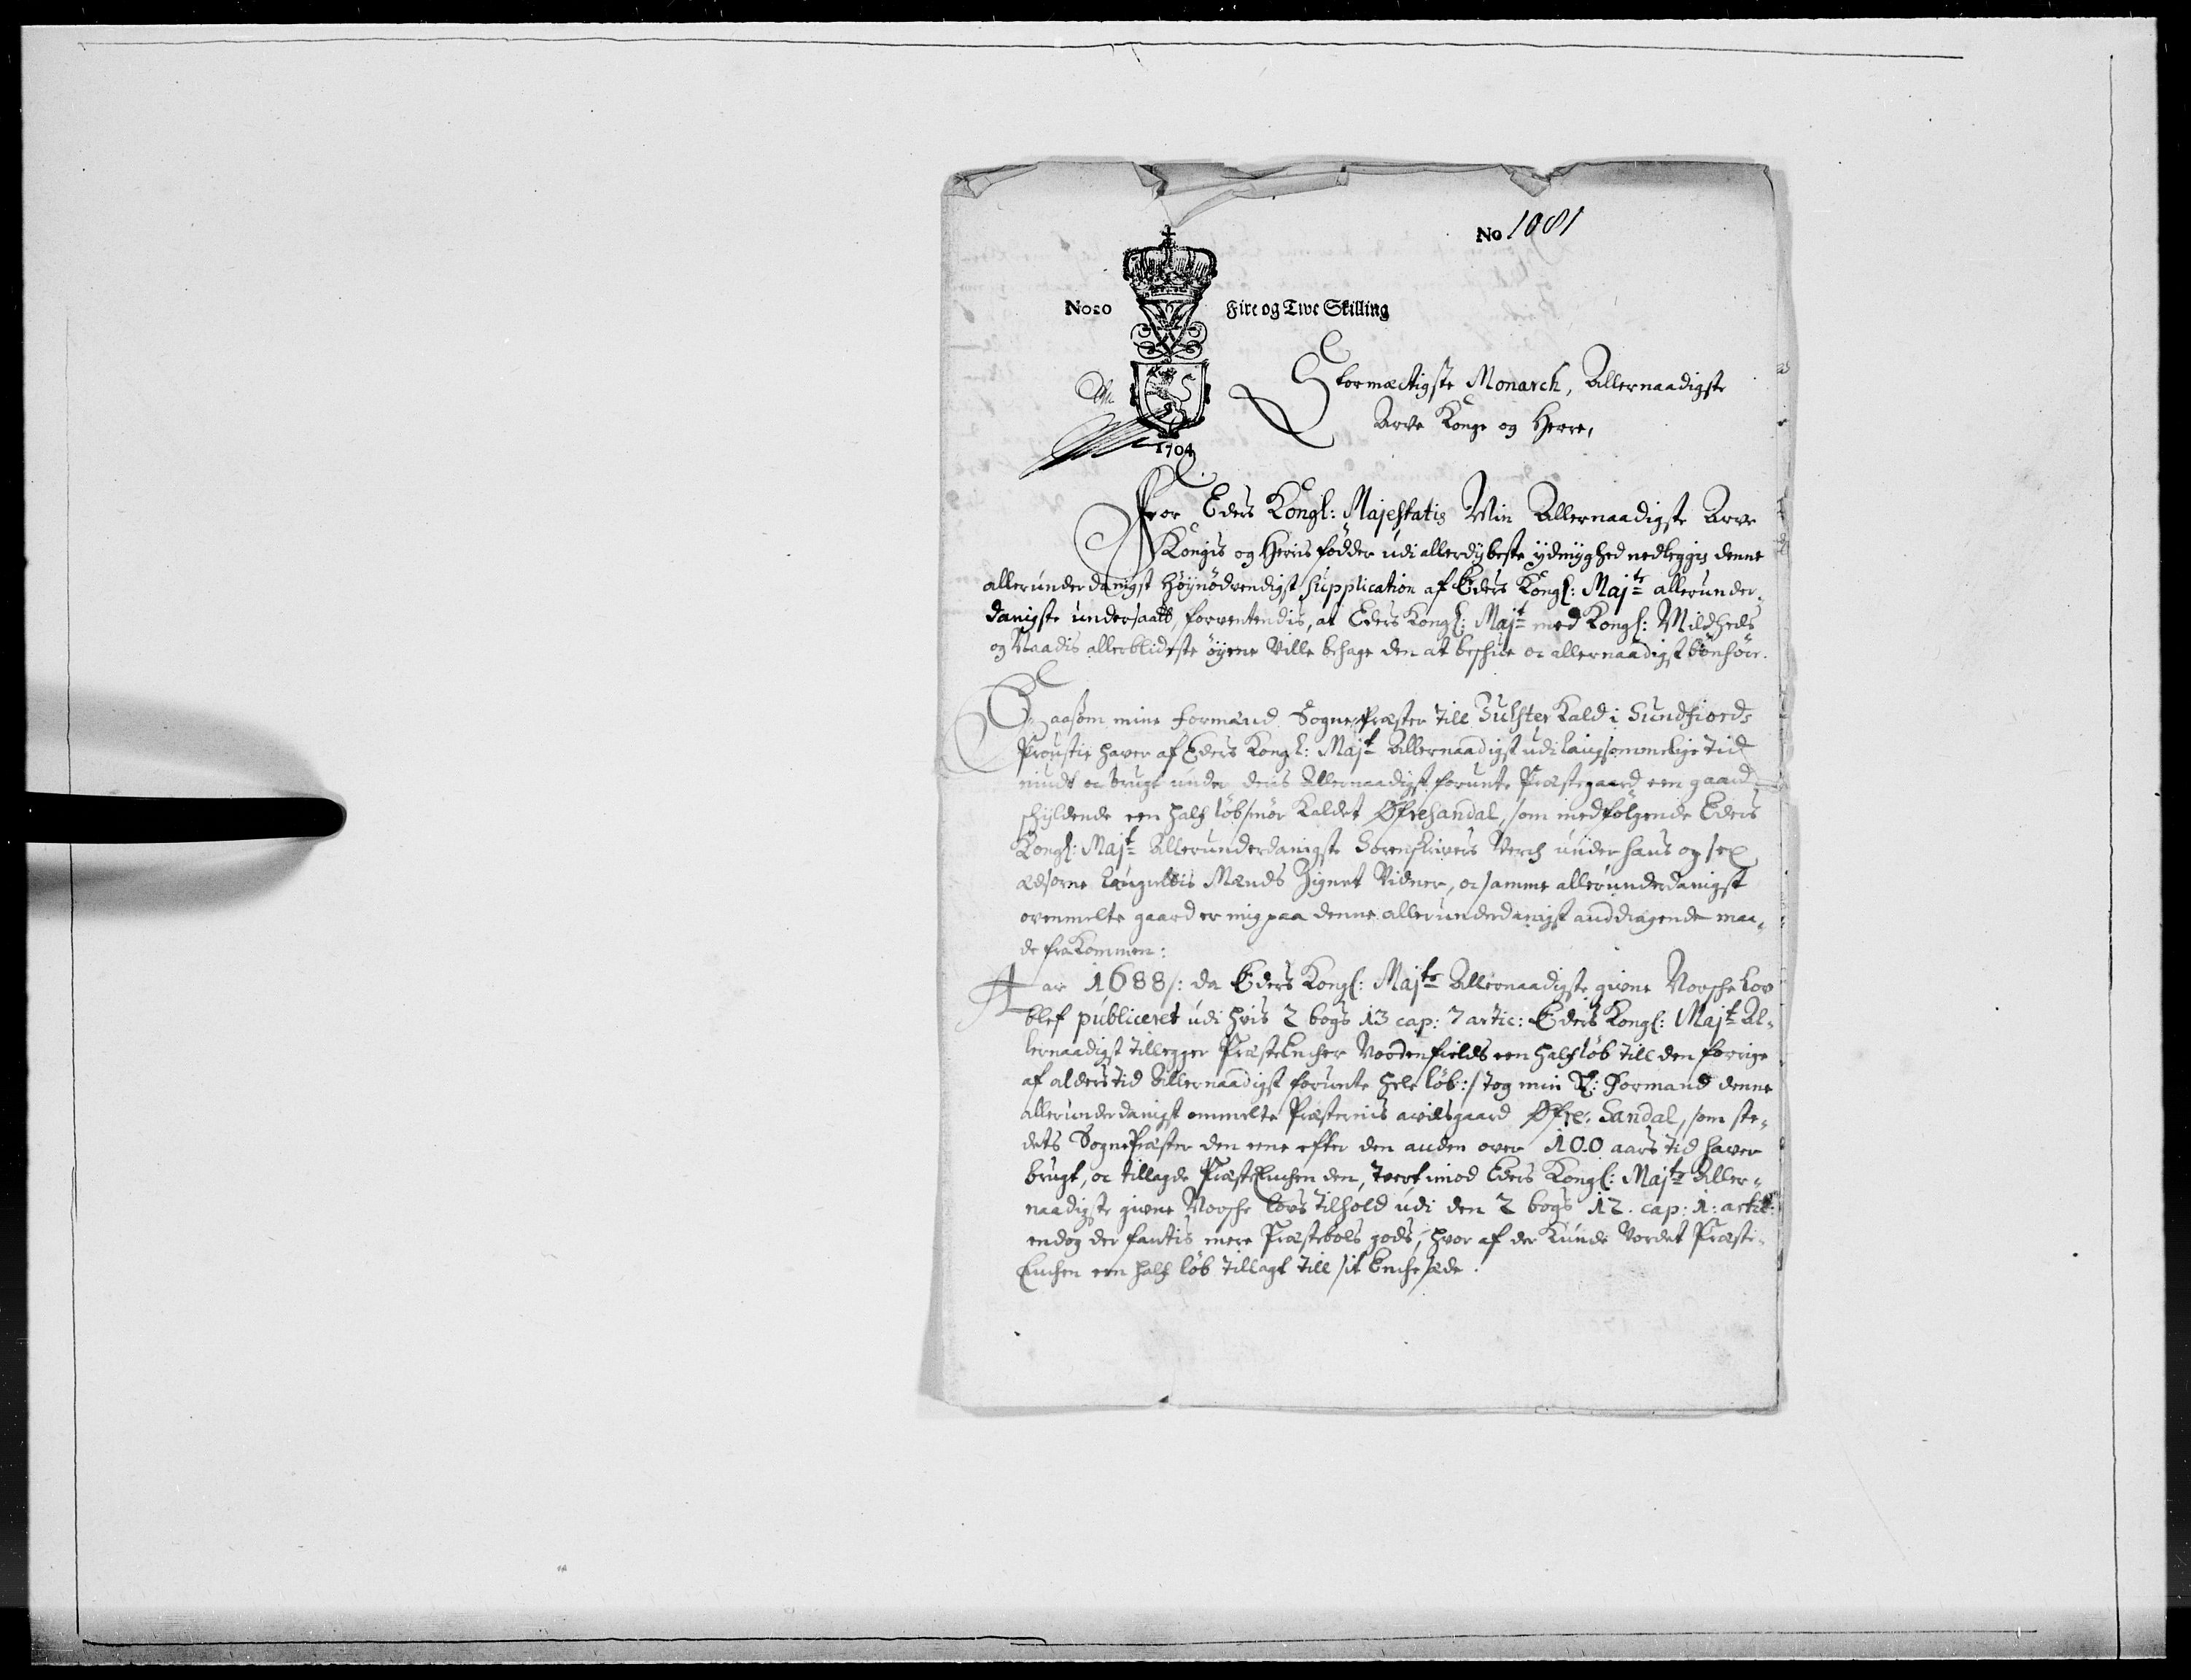 No 1081
No20 Fire og Tive Skilling
1704
Stormectigste Monarch, Allernaadigste
Arve Konge og Herre,
For Eders Kongl: Majestatis Min Allernaadigste Arve
Kongis og Herris fødder udi allerdybeste ydmyghed nedleggis denne
allerunderdanigst høynødvendigst Supplication af Eders Kongl: Majts allerunder,
danigste undersaatt, forventendis, at Eders Kongl: Majt med Kongl: Mildheds
og Naadis allerblideste øyene Ville behage den at beskue oc allernaadigst bønhøre.
Saasom mine formænd Sogne Præster till Julster Kald i Sundfiords
Proustie haver af Eders Kongl: Majt Allernaadigst udi langsommelige tid
nundt oc brugt under deris Allernaadigst forunte Præstegaard een gaard
schyldende een half løb smør Kaldet Øfresandal, som medfølgende Eders
Kongl: Majt Allerunderdanigste Sorenskrivers Verch under hans og sex
ædsorne Laugrettis Mænds Zignet Vidner, oc samme allerunderdanigst
ovenmelte gaard er mig paa denne allerunderdanigst anddragende maa,
de fra Kommen:
Aar 1688/: da Eders Kongl: Majts Allernaadigste givne Norsche Lov
blef publiceret udi hvis 2 bogs 13 cap: 7 artic: Eders Kongl: Majt Al,
lernaadigst tillegger Præsteencher Nordenfields een half løb till den forrige
af alders tid Allernaadigst forunte hele løb:/ tog min S: Formand denne
allerunderdanigst ommelte Præsternis avelsgaard Øfre: Sandal, som ste,
dets Sogne Præster den eene efter den anden over 100 aars tid haver
brugt, oc tillagde PræstEnchen den, tvert imod Eders Kongl: Majts Aller,
naadigste givne Norsche lovs tilhold udi den 2 bogs 12. cap: 1: artic:
endog der fantis mere Præstebols gods, hvor af der Kunde Vordet Præste,
Enchen een half løb tillagt till sit Enchesæde.